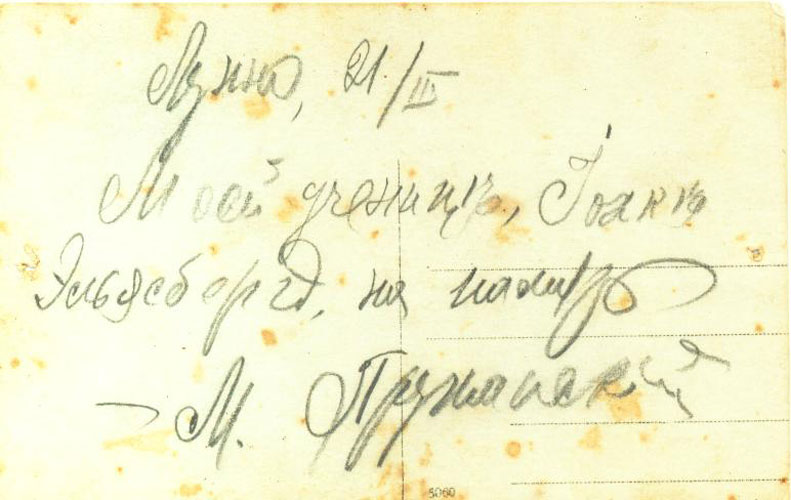 Лунно, 21/III
Моей ученицѣ, Іоаннѣ
Эльясберг, на память
М. Пружанский
5060